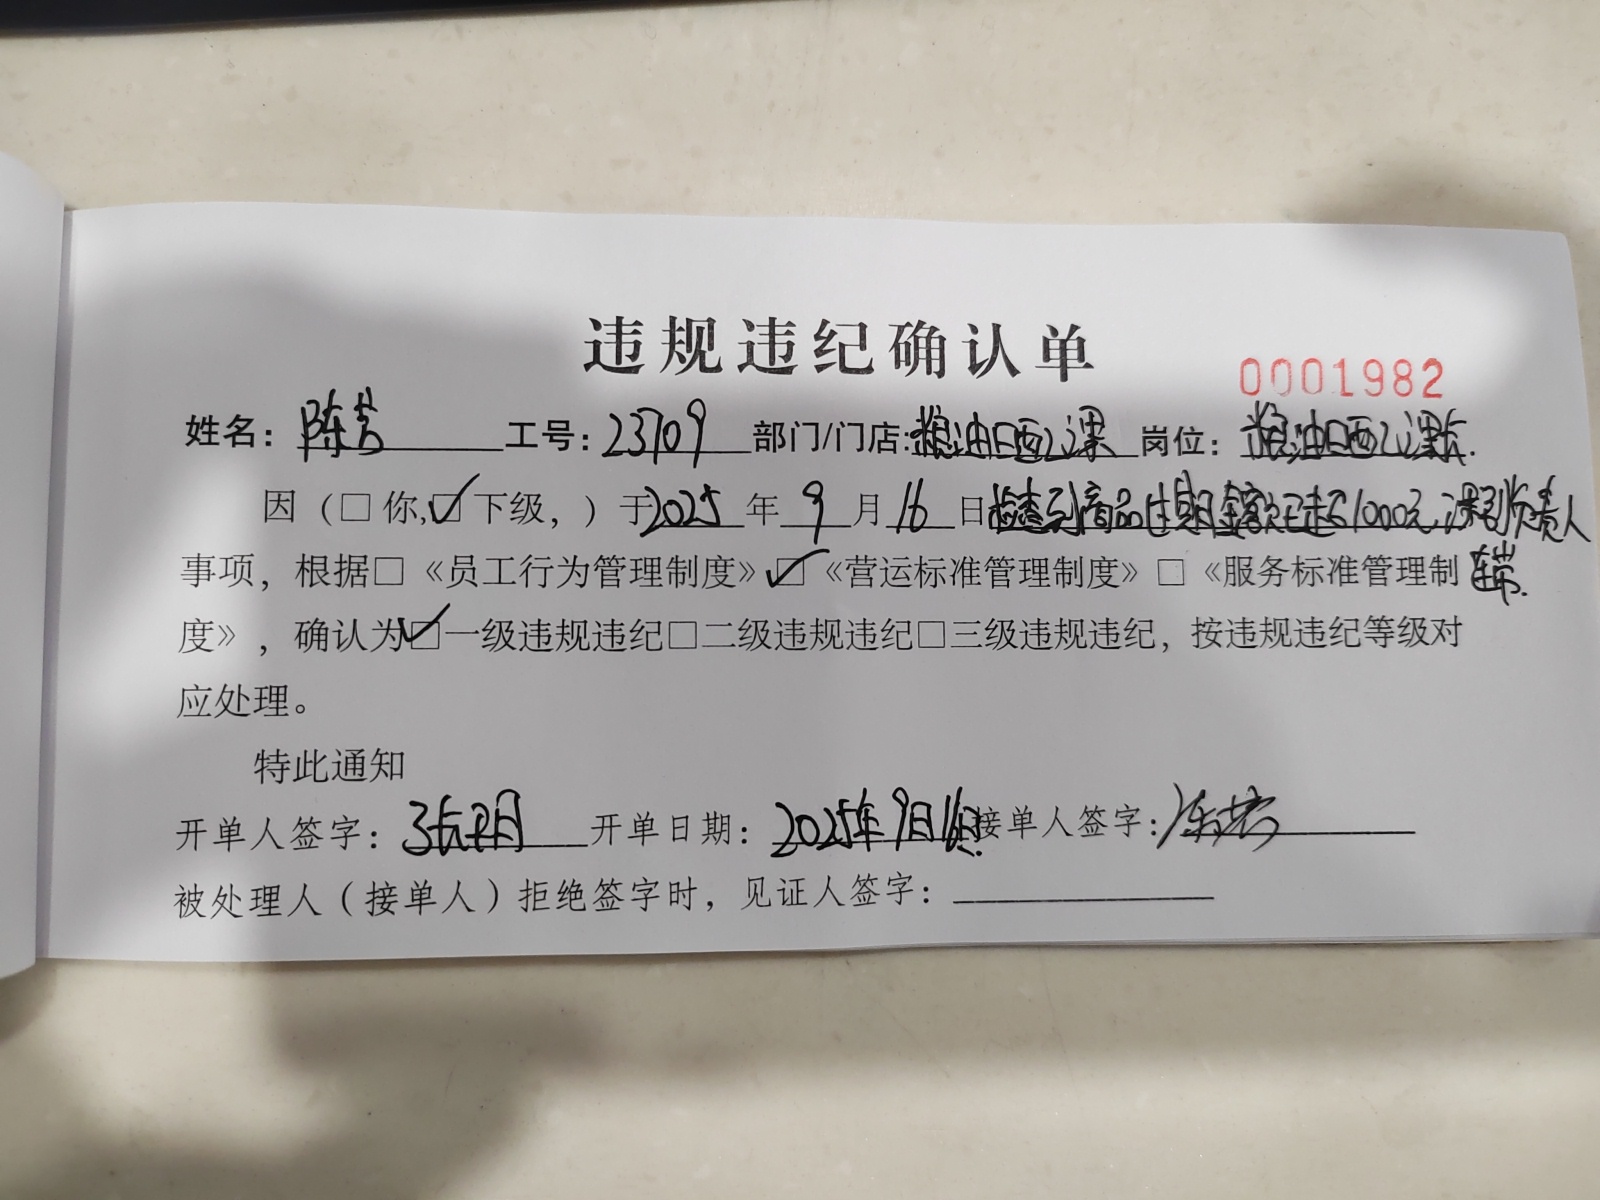 违规违纪确认单
0001982
姓名：陈芳 工号：23709 部门/门店：粮油日配课 岗位：粮油日配课长.
因（□ 你，☑ 下级，）于2025年9月16日检查到商品过期金额已超1000元，课别负责人
事项，根据□《员工行为管理制度》☑《营运标准管理制度》□《服务标准管理制 连带.
度》，确认为☑一级违规违纪□二级违规违纪□三级违规违纪，按违规违纪等级对
应处理。
特此通知
开单人签字： 开单日期：2025年9月16日. 接单人签字：陈芳
被处理人（接单人）拒绝签字时，见证人签字：